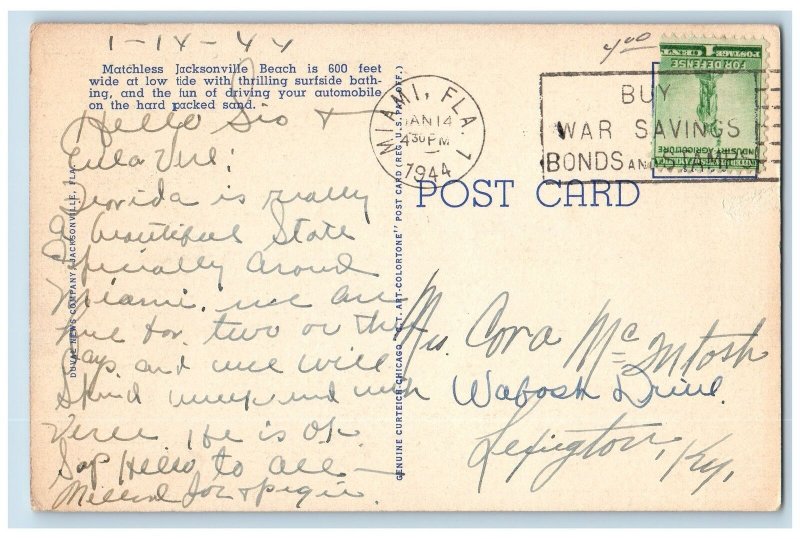 1-14-44
Matchless Jacksonville Beach is 600 feet
wide at low tide with thrilling surfside bath-
ing, and the fun of driving your automobile
on the hard packed sand.
Hello Sis +
Eula Vere:
Florida is really
a beautiful State
especially around
Miami. we are
here for two or three
Days and we will
Spend weekend with
Vere he is OK
Say Hello to all —
DUVAL NEWS COMPANY, JACKSONVILLE, FLA.
GENUINE CURTEICH-CHICAGO "C.T. ART-COLORTONE" POST CARD (REG. U.S. PAT. OFF.)
MIAMI, FLA. 1
JAN 14
4 30 PM
1944
4.00
BUY
WAR SAVINGS
BONDS AND STAMPS
1 CENT
POSTAGE
FOR DEFENSE
INDUSTRY AGRICULTURE
POST CARD
Mrs. Cora McIntosh
Wabash Drive.
Lexington, Ky,